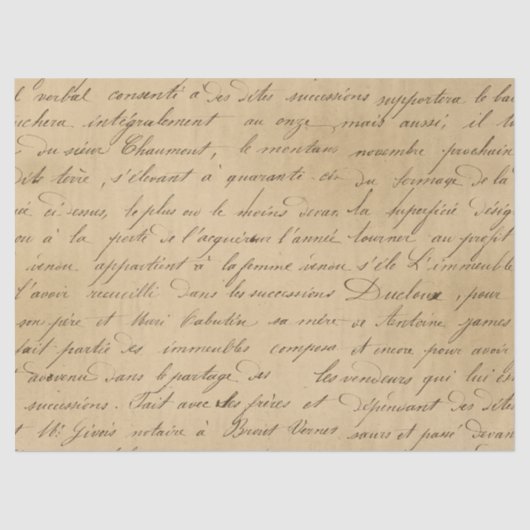 l verbal consenti à des dites successions supportera le bai
uchera intégralement au onze mais aussi, il t
du sieur Chaumont, le montans novembre prochain
dite terre, s'élevant à quaranti du fermage de la
ée ci dessus, le plus ou le moins devan la superficie désig
ou à la perte de l'acquéreur l'année tourner au profit
venou appartient à la femme venou s'éle L'immeuble
l'avoir recueilli dans les successions Ducloux, pour
son père et Mari Cabutin sa mère de Antoine James
fait partie des immeubles composa et encore pour avoir
d'avovenu dans le partage des les vendeurs qui lui es
successions. Fait avec les frères et dépendant des dites
t Mr Givois notaire à Brout Vernes saurs et passé devan